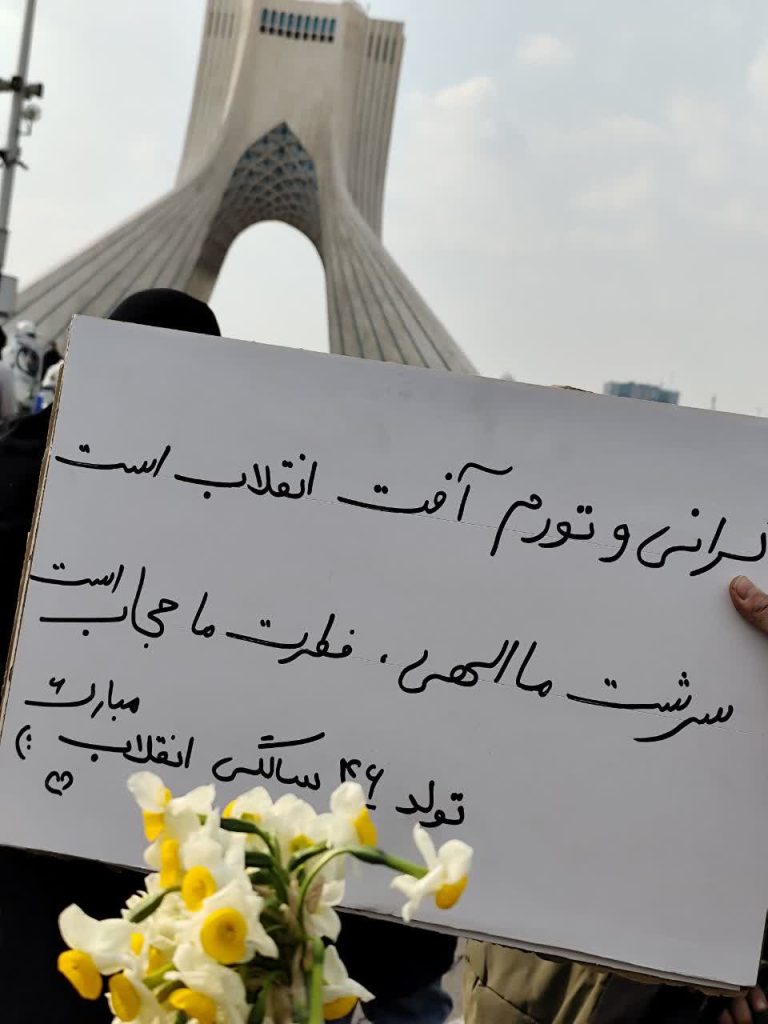 گرانی و تورم آفت انقلاب است
سرشت ما الهی، فطرت ما حجاب است
تولد ۴۶ سالگی انقلاب مبارک :)
♡